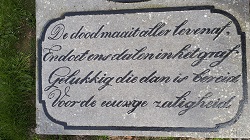 De dood maait aller leven af.
En doet ons dalen in het graf.
Gelukkig die dan is bereid.
Voor de eeuwge zaligheid.